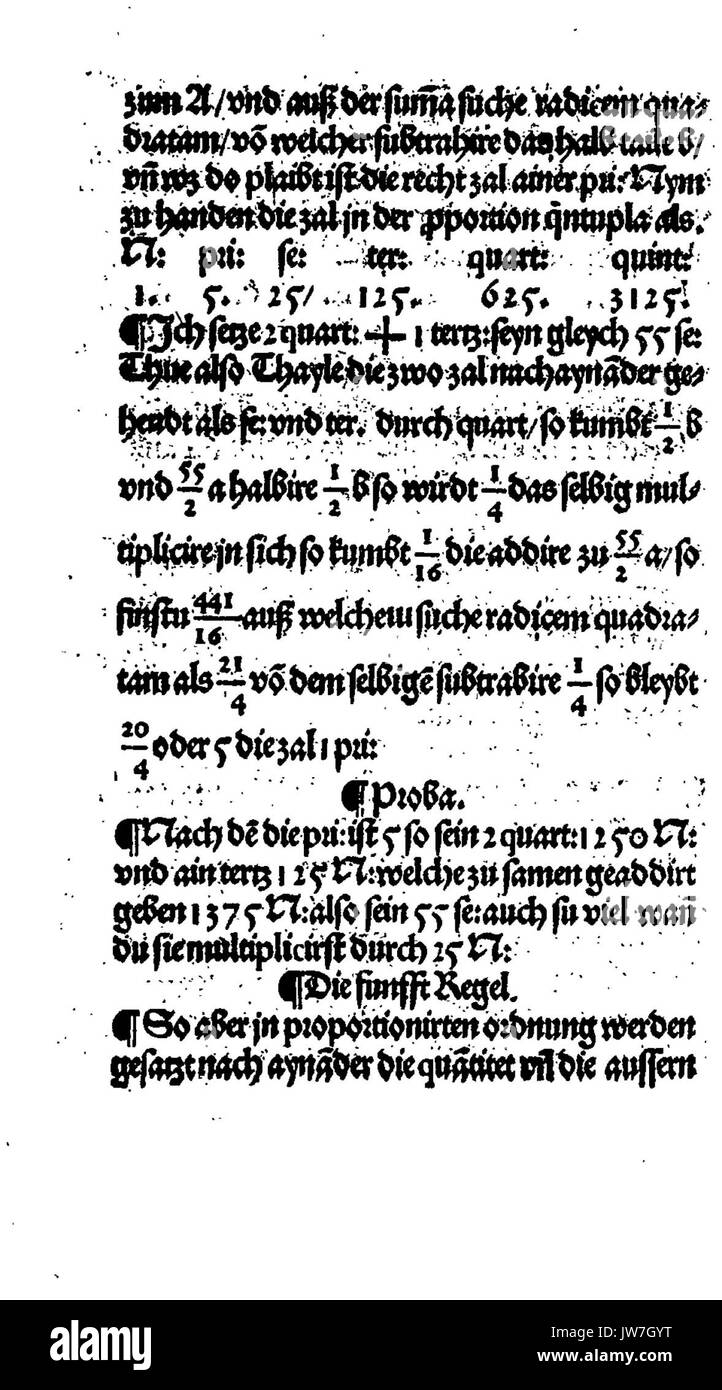 zum A/vnd auß der sum̄a suche radicem qua⸗
dratam/võ welcher subtrahire das halb taile b/
vn̄ wz do plaibt ist die recht zal ainer pri: Nym
zu handen die zal jn der ꝓportion q̄ntupla als.
N: pri: se: ter: quart: quint:
1. 5. 25/ 125. 625. 3125.
¶Ich setze 2 quart: + 1 tertz: seyn gleych 55 se:
Thue also Thayle die zwo zal nach aynãder ge⸗
hendt als se: vnd ter. durch quart/so kumbt 1/2 b
vnd 55/2 a halbire 1/2 b so wirdt 1/4 das selbig mul⸗
tiplicire jn sich so kumbt 1/16 die addire zu 55/2 a/so
finstu 441/16 auß welchem suche radicem quadra⸗
tam als 21/4 võ dem selbigẽ subtrahire 1/4 so bleybt
20/4 oder 5 die zal 1 pri:
¶Proba.
¶Nach dẽ die pri: ist 5 so sein 2 quart: 1250 N:
vnd ain tertz 125 N: welche zu samen geaddirt
geben 1375 N: also sein 55 se: auch su viel wañ
du sie multiplicirst durch 25 N:
¶Die funfft Regel.
¶ So aber jn proportionirten ordnung werden
gesatzt nach aynãder die quãtitet vn̄ die aussern
alamy
Image ID: JW7GYT
www.alamy.com